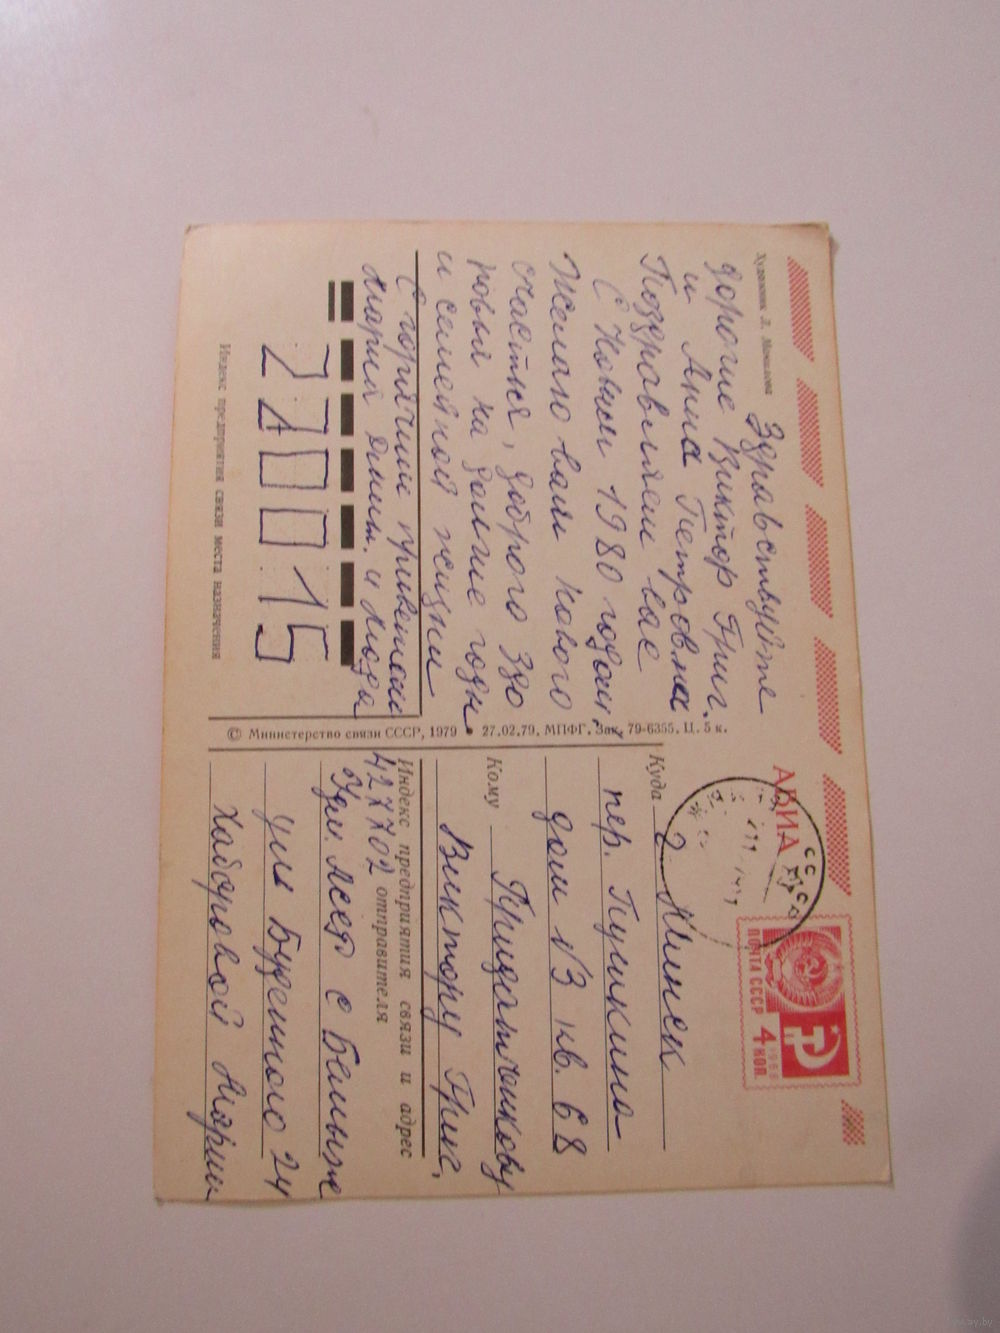 Художник Л. Манилова
Здравствуйте
дорогие Виктор Григ.
и Анна Петровна
Поздравляем вас
С Новым 1980 годом,
Желаю вам нового
счастья, доброго здо
ровья на долгие годы
и семейной жизни
С горячим приветом
Мария Дмит. и Люда
220015
Индекс предприятия связи места назначения
© Министерство связи СССР, 1979 • 27.02.79. МПФГ. Зак. 79-6355. Ц. 5 к.
АВИА
ПОЧТА СССР
4 КОП.
1966
Куда г Минск
пер. Пушкина
дом 13 кв. 68
Кому Гридатчикову
Виктору Григ,
Индекс предприятия связи и адрес
отправителя
427702
Удм. Асср с Бемыж
ул Буденного 24
Хабаровой Марии